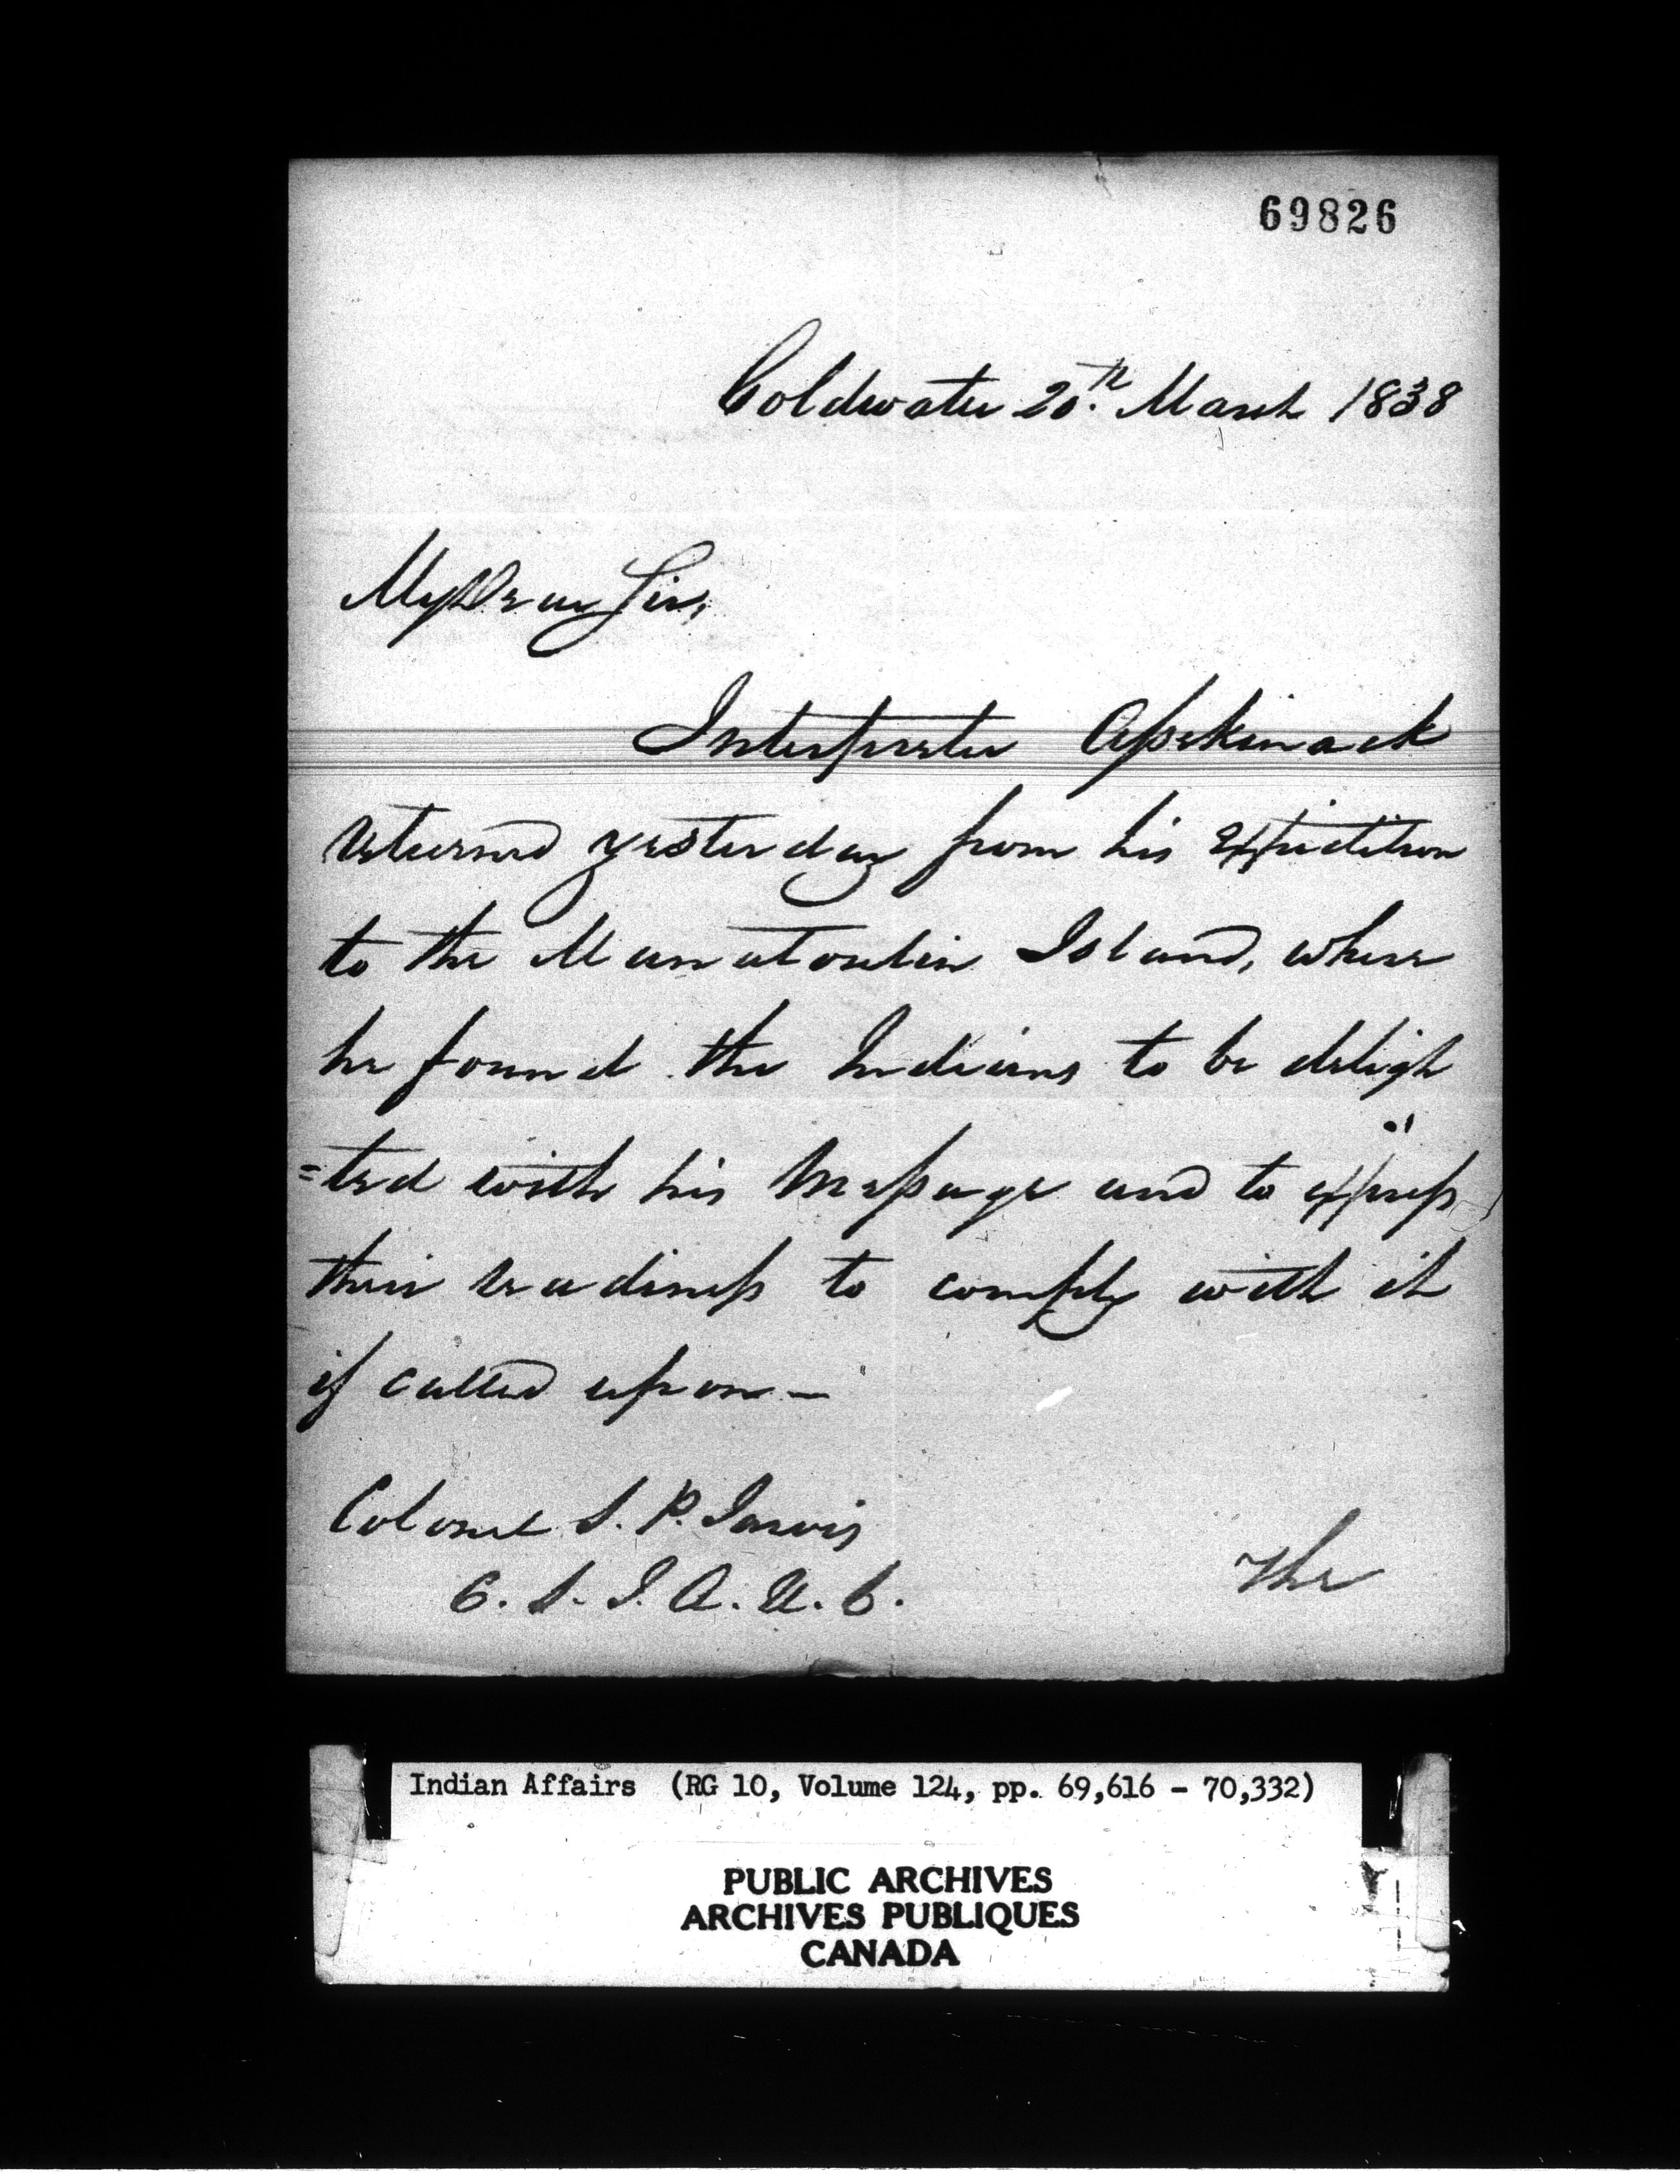 69826
Coldwater 20th. March 1838
My Dear Sir,
Interpreter Assekinack
returned yesterday from his expedition
to the Manatoulin Island, where
he found the Indians to be deligh
=ted with his Message and to express
their readiness to comply with it
if called upon—
Colonel S. P. Jarvis
C. S. I. A. U. C.
The
Indian Affairs (RG 10, Volume 124, pp. 69,616 - 70,332)
PUBLIC ARCHIVES
ARCHIVES PUBLIQUES
CANADA